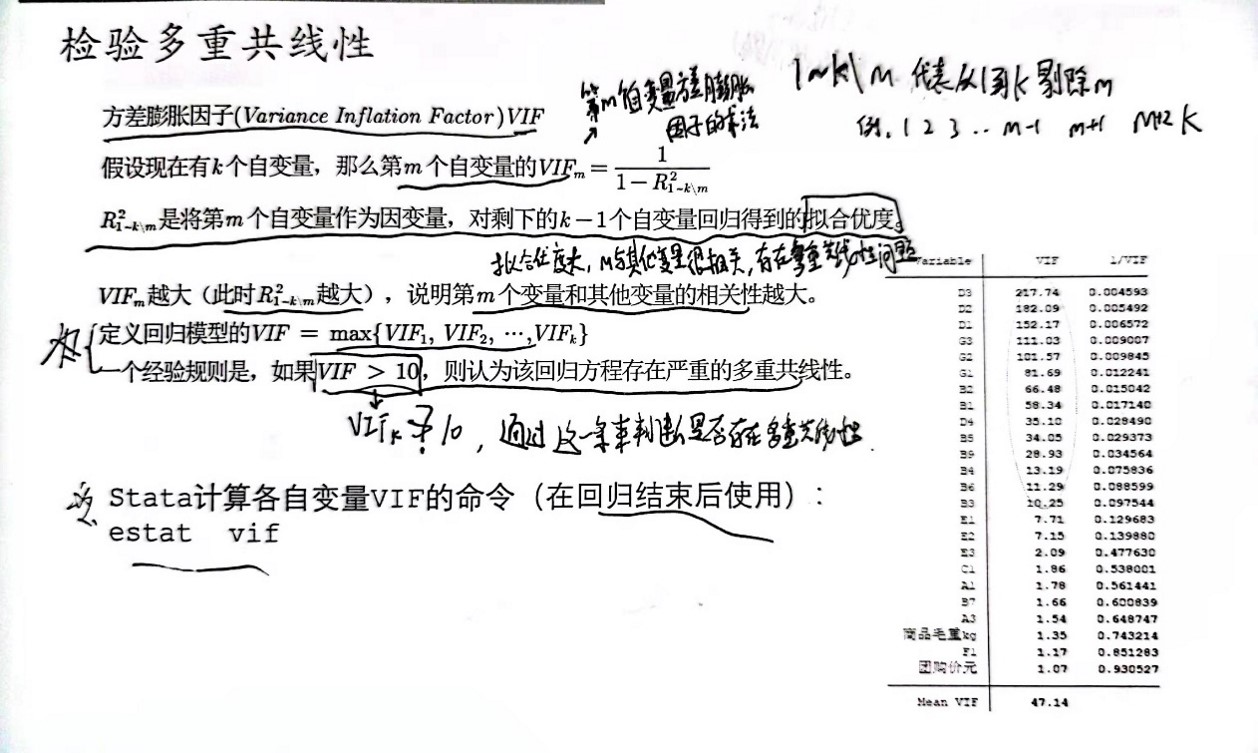 检验多重共线性
1~k\m 代表从1到k剔除m
例. 1 2 3 .. m-1 m+1 m+2 k
第m个自变量方差膨胀
因子的求法
方差膨胀因子(Variance Inflation Factor)VIF
假设现在有k个自变量，那么第m个自变量的VIFₘ = 1 / (1 − R²₁~ₖ\ₘ)
R²₁~ₖ\ₘ是将第m个自变量作为因变量，对剩下的k−1个自变量回归得到的拟合优度。
拟合优度大，m与其他变量很相关，存在多重共线性问题
VIFₘ越大（此时R²₁~ₖ\ₘ越大），说明第m个变量和其他变量的相关性越大。
定义回归模型的VIF = max{VIF₁, VIF₂, ⋯,VIFₖ}
一个经验规则是，如果VIF > 10，则认为该回归方程存在严重的多重共线性。
通过这一条来判断是否存在多重共线性.
Stata计算各自变量VIF的命令（在回归结束后使用）：
estat vif
Variable VIF 1/VIF
D3 217.74 0.004593
D2 182.09 0.005492
D1 152.17 0.006572
G3 111.03 0.009007
G2 101.57 0.009845
G1 81.69 0.012241
B2 66.48 0.015042
B1 58.34 0.017140
D4 35.10 0.028490
B5 34.05 0.029373
B9 28.93 0.034564
B4 13.19 0.075836
B6 11.29 0.088599
B3 10.25 0.097544
E1 7.71 0.129683
E2 7.15 0.139880
E3 2.09 0.477630
C1 1.86 0.538001
A1 1.78 0.561441
B7 1.66 0.600839
A3 1.54 0.648747
商品毛重kg 1.35 0.743214
F1 1.17 0.851283
团购价元 1.07 0.930527
Mean VIF 47.14